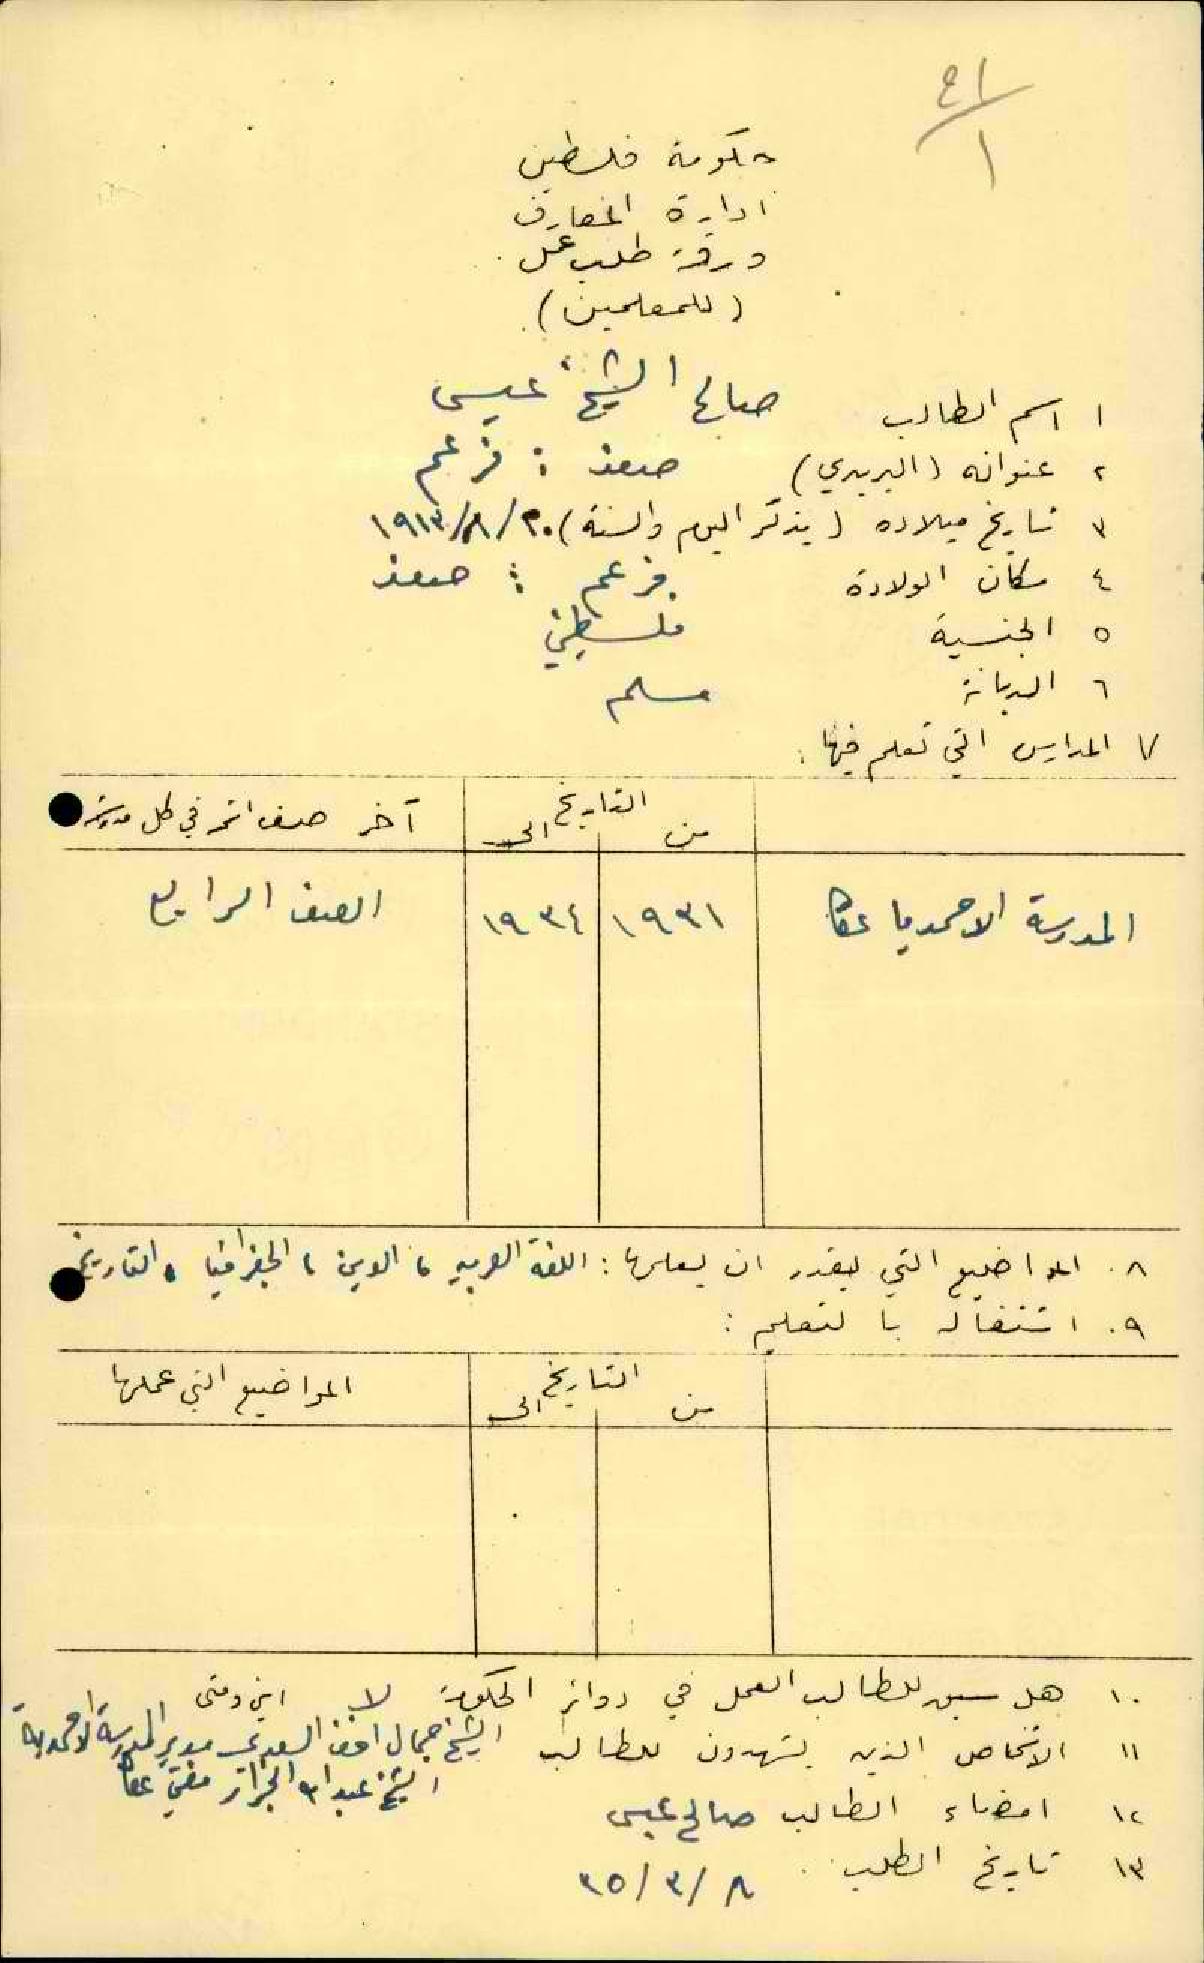 ٤١/١
حكومة فلسطين
ادارة المعارف
ورقة طلب عمل
(للمعلمين)
١ اسم الطالب صالح الشيخ عيسى
٢ عنوانه (البريدي) صفد : فرعم
٣ تاريخ ميلاده (يذكر اليوم والسنة) ٢٠/٨/١٩١٣
٤ مكان الولادة فرعم : صفد
٥ الجنسية فلسطيني
٦ الديانة مسلم
٧ المدارس التي تعلم فيها :
التاريخ
من الى آخر صف اتمه في كل مدرسة
المدرسة الاحمديا عكا ١٩٣١ ١٩٣٤ الصف الرابع
٨. المواضيع التي يقدر ان يعلمها : اللغة العربيه ، الدين ، الجغرافيا ، التاريخ
٩. اشتغاله بالتعليم :
التاريخ
من الى المواضيع التي علمها
١٠. هل سبق للطالب العمل في دوائر الحكومة لا اين ومتى
١١ الاشخاص الذين يشهدون للطالب الشيخ جمال افندي السعدي مدير المدرسة الاحمدية
الشيخ عبدالله الجزار مفتي عكا
١٢ امضاء الطالب صالح عيسى
١٣ تاريخ الطلب ٨/٣/٣٥